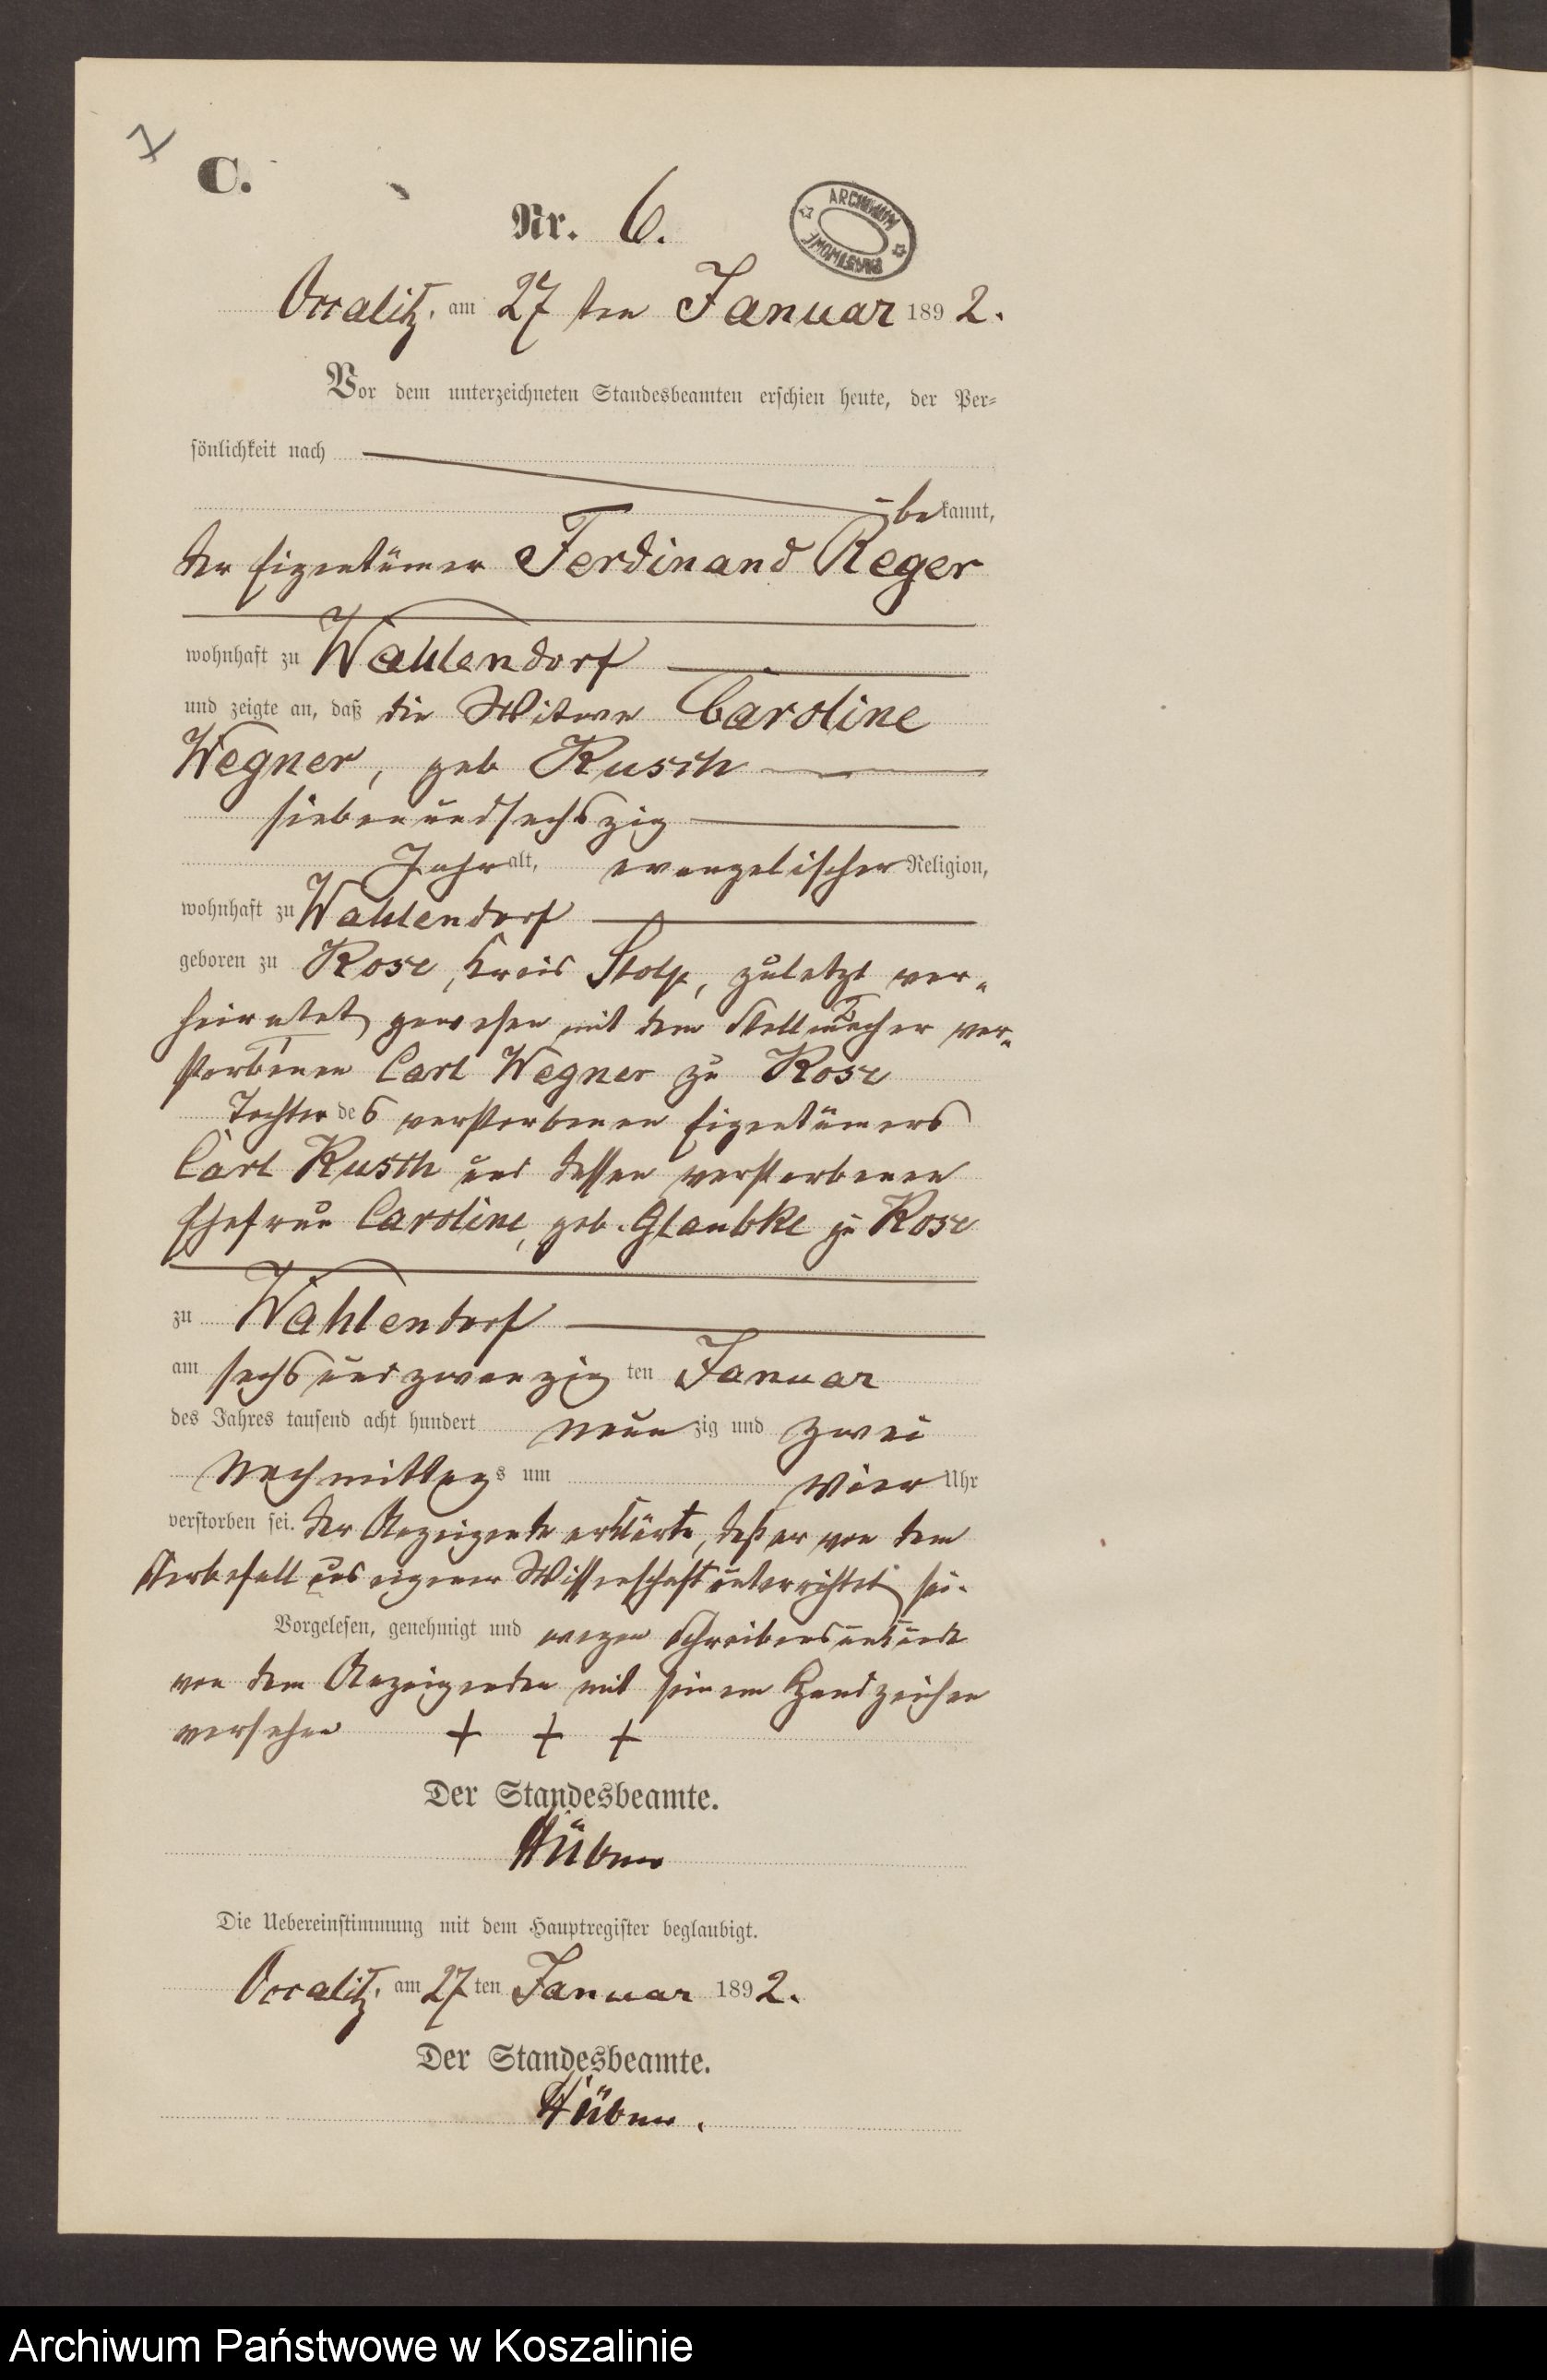 7
C.
Nr. 6.
ARCHIWUM PAŃSTWOWE
Occalitz, am 27 ten Januar 1892.
Vor dem unterzeichneten Standesbeamten erschien heute, der Per-
sönlichkeit nach
bekannt,
der Eigentümer Ferdinand Reger
wohnhaft zu Wahlendorf
und zeigte an, daß die Witwe Caroline
Wegner, geb Rusch
siebenundsechszig
Jahr alt, evangelischer Religion,
wohnhaft zu Wahlendorf
geboren zu Rose, Kreis Stolp, zuletzt ver-
heiratet gewesen mit dem Stellmacher ver-
storbenen Carl Wegner zu Rose
Tochter des verstorbenen Eigentümers
Carl Rusch und dessen verstorbenen
Ehefrau Caroline, geb. Glaubke zu Rose
zu Wahlendorf
am sechsundzwanzig ten Januar
des Jahres tausend acht hundert neunzig und zwei
Nachmittags um vier Uhr
verstorben sei. Der Anzeigende erklärte, daß er von dem
Sterbefall aus eigener Wissenschaft unterrichtet sei.
Vorgelesen, genehmigt und wegen Schreibensunkunde
von dem Anzeigenden mit seinem Handzeichen
versehen + + +
Der Standesbeamte.
Hübner
Die Uebereinstimmung mit dem Hauptregister beglaubigt.
Occalitz, am 27 ten Januar 1892.
Der Standesbeamte.
Hübner.
Archiwum Państwowe w Koszalinie